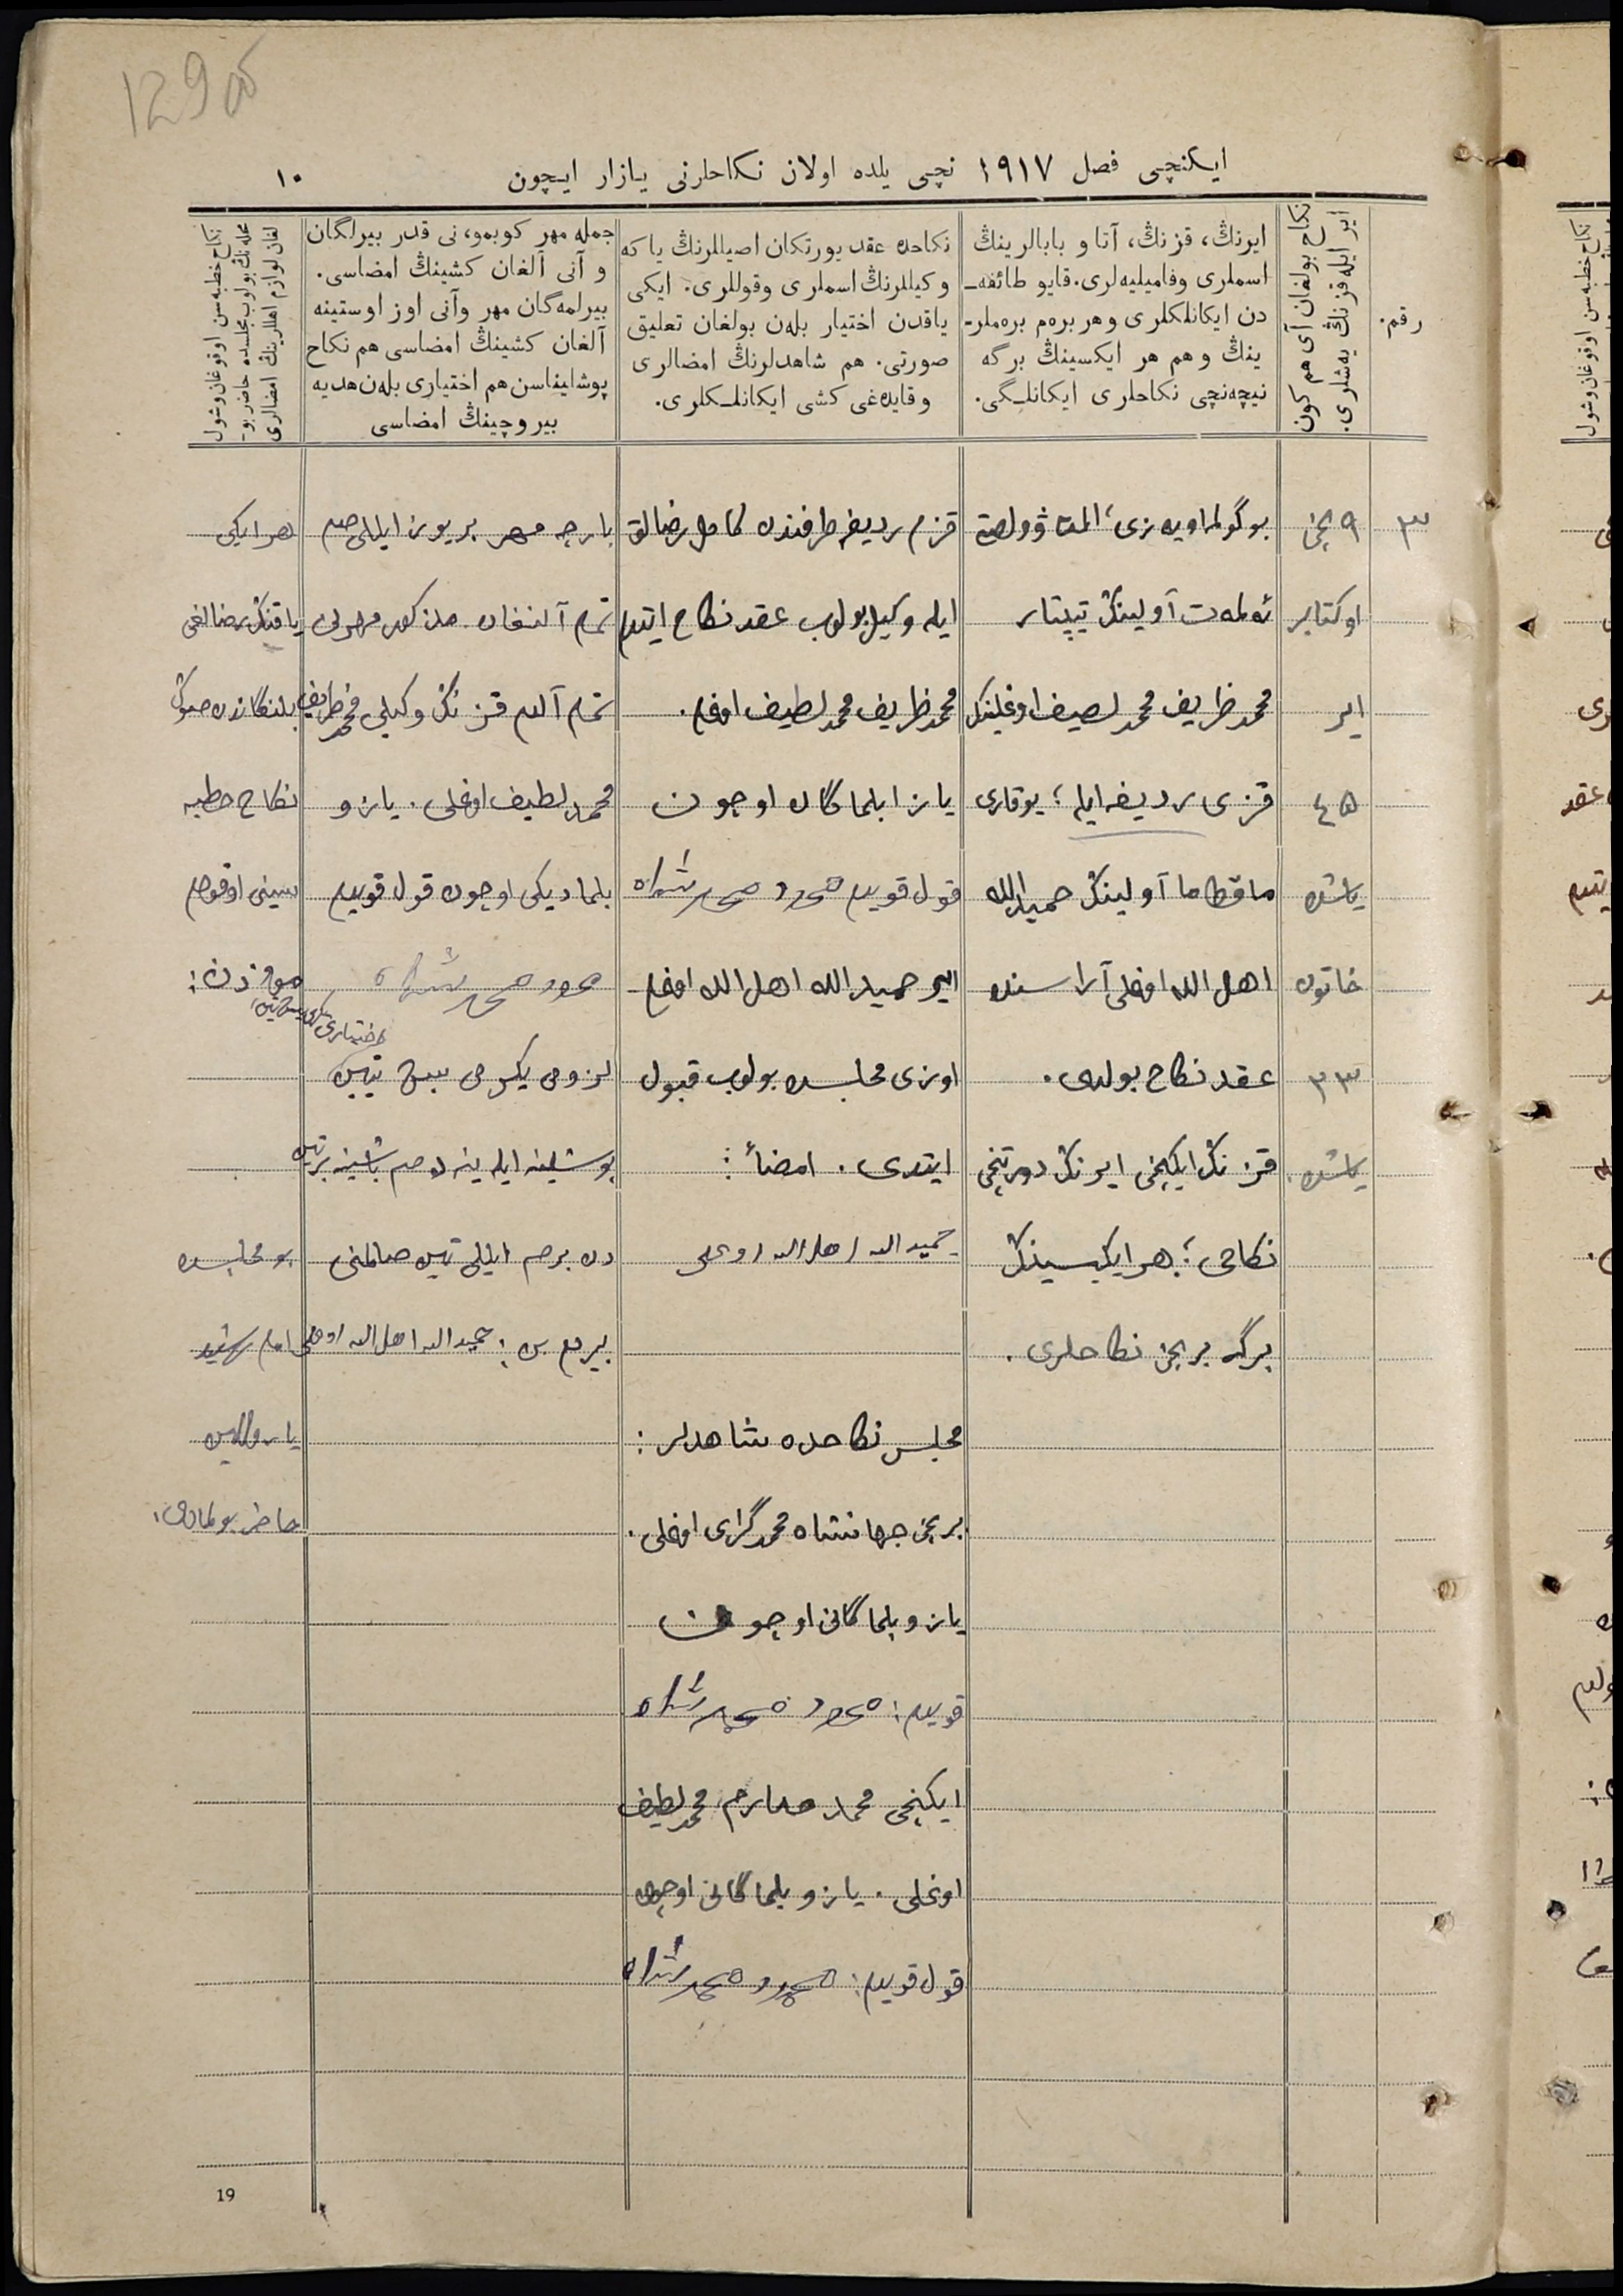 129 об
ایکنچی فصل ۱۹۱۷ نچی یلده اولان نکاحلرنی یازار ایچون
۱۰
رقم.
نکاح بولغان آی هم کون
ایر ایله قزنڭ یه‌شلری.
ایرنڭ، قزنڭ، آتا و بابالرینڭ
اسملری وفامیلیه‌لری. قایو طائفه‌ـ
دن ایکانلکلری وهر بره‌م بره‌ملرـ
ینڭ وهم هر ایکسینڭ برگه
نیچه‌نچی نکاحلری ایکانلـگی.
نکاحده عقد یورتکان اصیللرنڭ یا که
وکیللرنڭ اسملری وقوللری. ایکی
یاقدن اختیار بله‌ن بولغان تعلیق
صورتی. هم شاهدلرنڭ امضالری
وقایده‌غی کشی ایکانلـکلری.
جمله مهر کوبمو، نی قدر بیرلگان
و آنی آلغان کشینڭ امضاسی.
بیرلمه‌گان مهر وآنی اوز اوستینه
آلغان کشینڭ امضاسی هم نکاح
پوشلیناسن هم اختیاری بله‌ن هدیه
بیروچینڭ امضاسی
نکاح خطبه‌سن اوقوغان وشول
محله‌نڭ بولوب مجلسده حاضر بوـ
لغان لوازم اهللرینڭ امضالری
۳
۹ نچی
اوکتابر
ایر
۴۵
یاشده
خاتون
۳۳
یاشده.
بوگولما اویه‌زی،
آولینڭ تیپتار
محمدظریف محمدلطیف اوغلینڭ
قزی ردیفه ایله؛ یوقاری
آولینڭ حمیدالله
اهل‌الله اوغلی آراسنده
عقد نکاح بولدی.
قزنڭ ایکنچی ایرنڭ دورتنچی
نکاحی؛ هر ایکیسینڭ
برگه برنچی نکاحلری.
قزم ردیفه طرفندن کامل رضالق
ایله وکیل بولوب عقد نکاح ایتدم
محمدظریف محمدلطیف اوغلی.
یازا بلماگان اوچون
قول قویدم محمود محمدشاه
ایر حمیدالله اهل‌الله اوغلی
اوزی مجلسده بولوب قبول
ایتدی. امضأ:
حمیدالله اهل‌الله اوغلی
مجلس نکاحده شاهدلر:
برنچی جهانشاه محمدگرای اوغلی.
یازو بلماگانی اوچون
قویدم: محمود محمدشاه
ایکنچی محمد صارم محمدلطیف
اوغلی. یازو بلماگانی اوچون
قول قویدم: محمود محمدشاه
بارچه مهر بر یوز ایللی صم
تمام آلنغان مذکور مهرنی
تمام آلدم قزنڭ وکیلی محمدظریف
محمدلطیف اوغلی. یازو
بلمادیکی اوچون قول قویدم
محمود محمدشاه
لزومی یکرمی بیش تین
اختیاری
پوشلینه ایله ینه ده صم باشینه بر تین
دن بر صم ایللی تین صالمنی
بیردم من: حمیدالله اهل‌الله اوغلی
هر ایکی
یاقنڭ رضالغی
بلنگاندن صوڭ
نکاح خطبه
سینی اوقودم
بو مجلسده
امام
حاضر بولمادی.
19